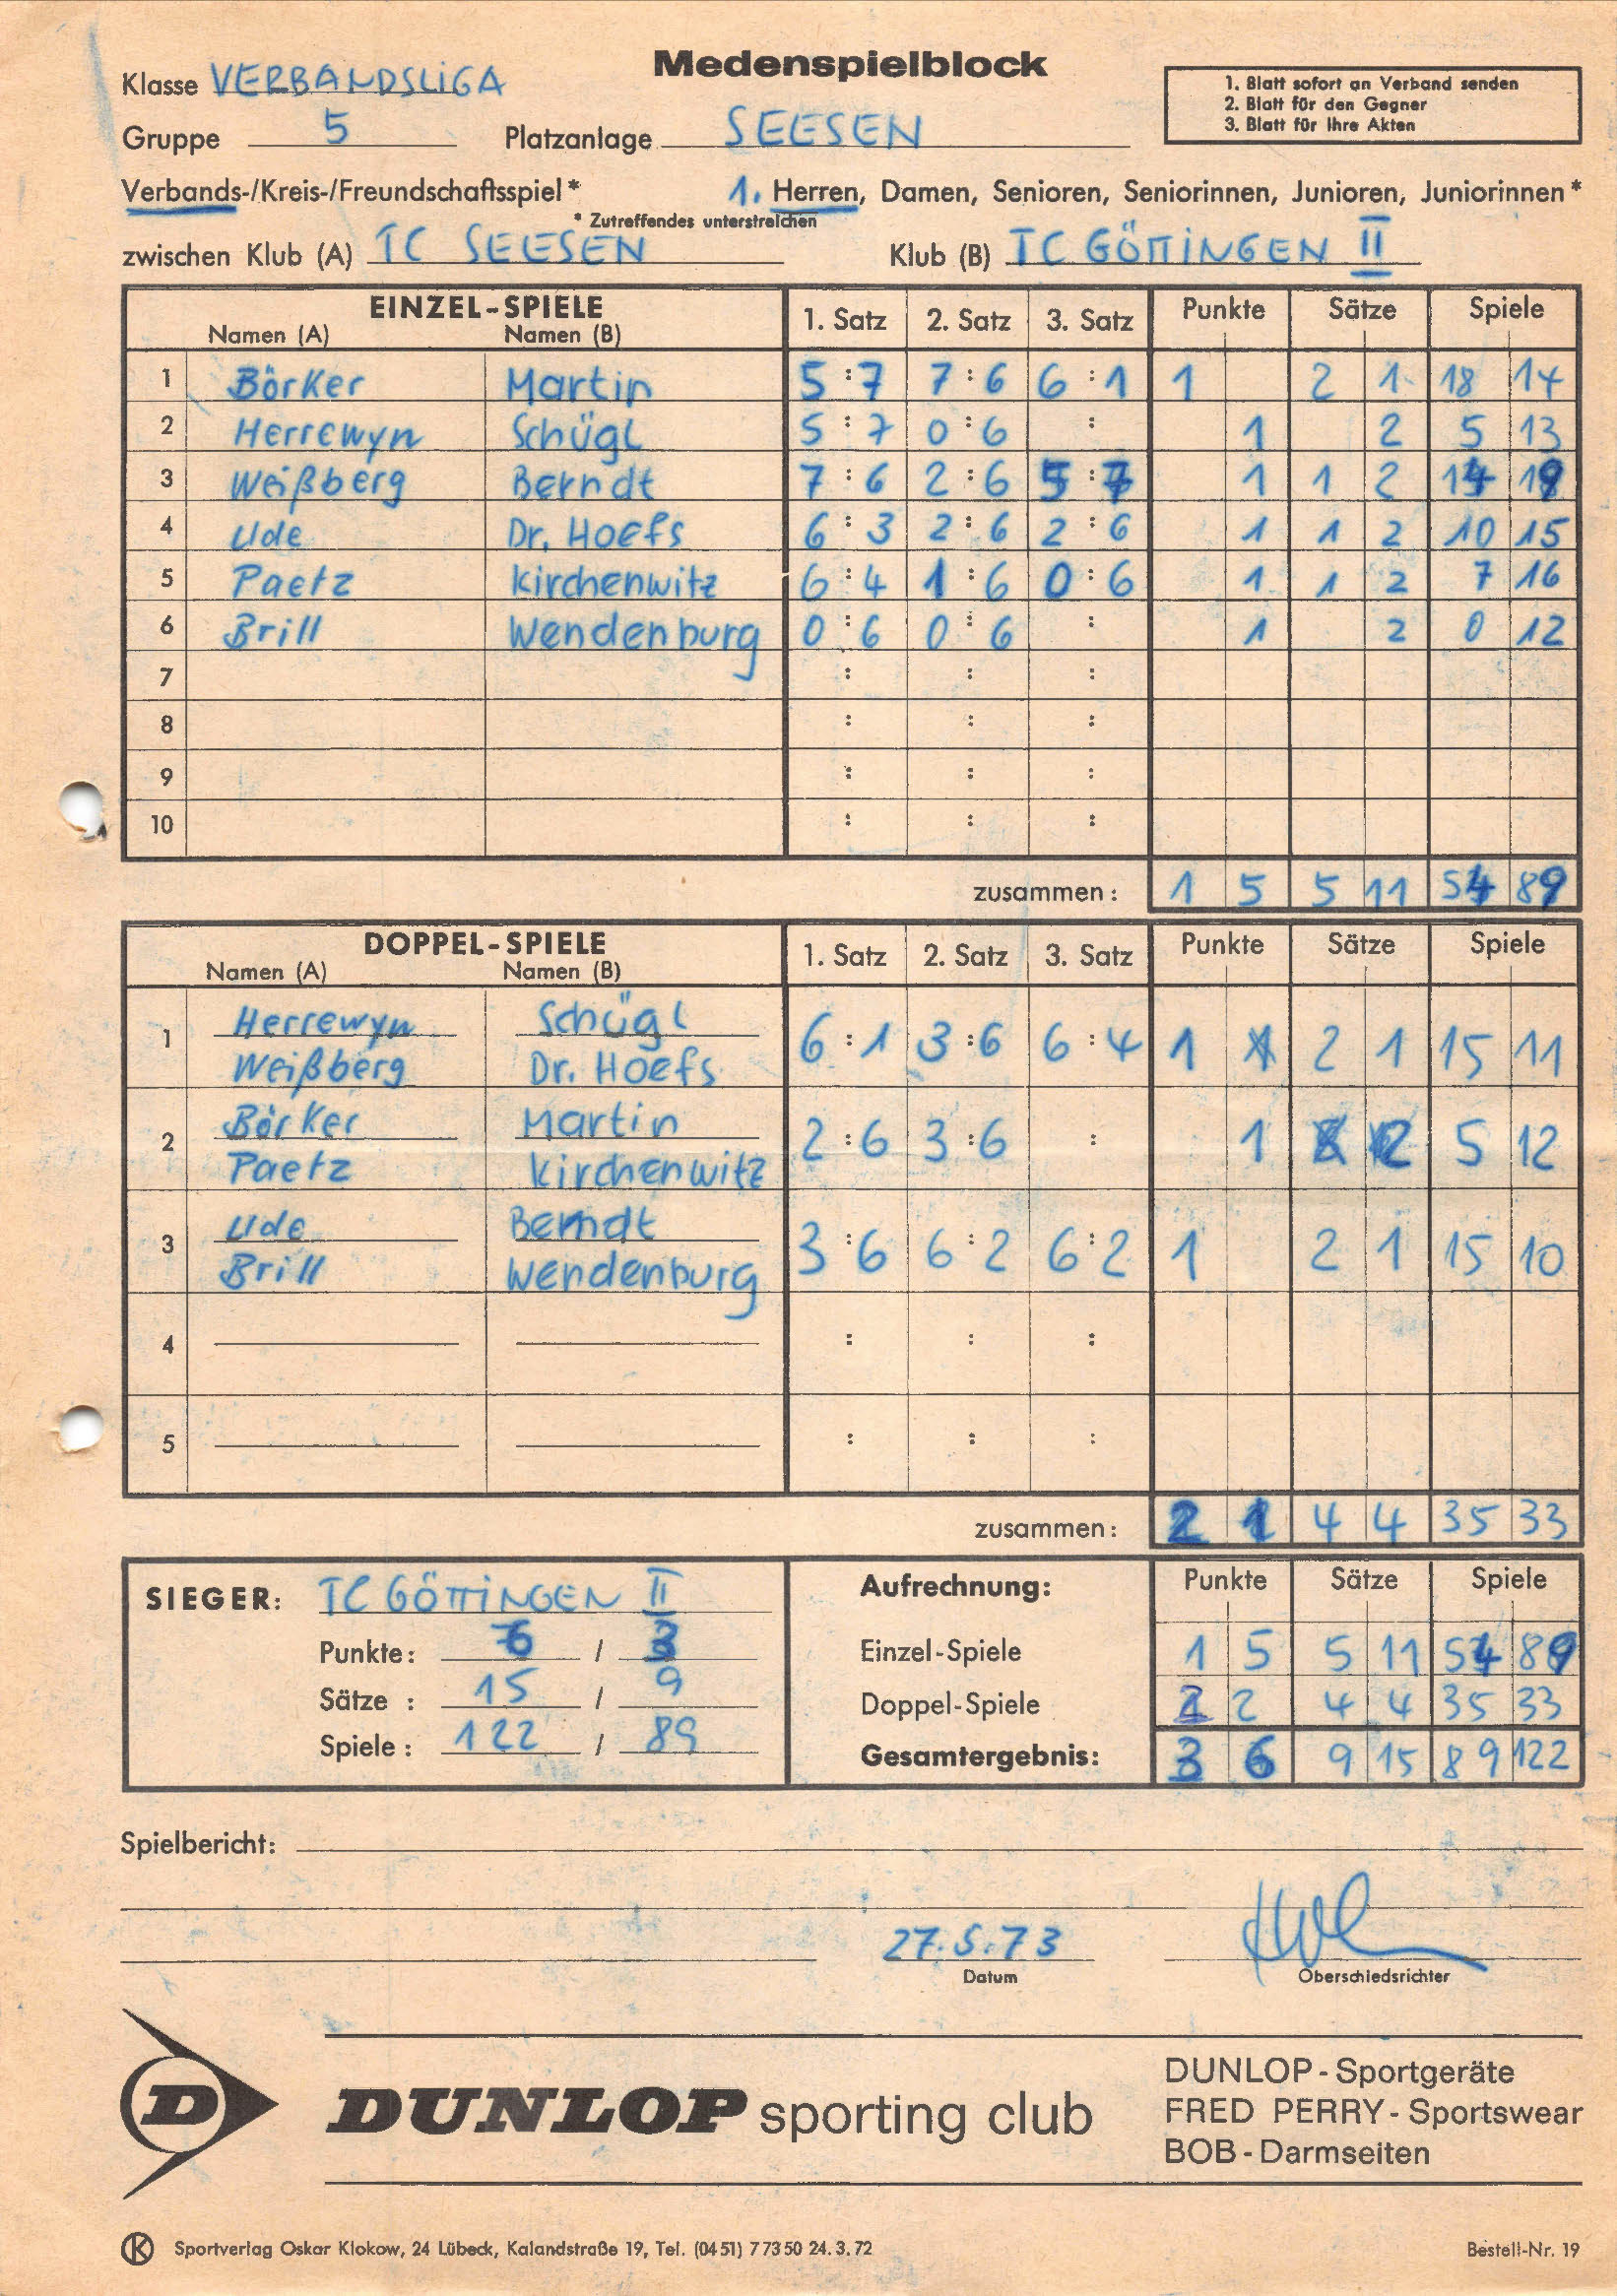 Medenspielblock
Klasse VERBANDSLIGA
1. Blatt sofort an Verband senden
2. Blatt für den Gegner
3. Blatt für Ihre Akten
Gruppe 5 Platzanlage SEESEN
Verbands-/Kreis-/Freundschaftsspiel* 1. Herren, Damen, Senioren, Seniorinnen, Junioren, Juniorinnen*
* Zutreffendes unterstreichen
zwischen Klub (A) TC SEESEN Klub (B) TC GÖTTINGEN II
EINZEL-SPIELE 1. Satz 2. Satz 3. Satz Punkte Sätze Spiele
Namen (A) Namen (B)
1 Börker Martin 5:7 7:6 6:1 1 2 1 18 14
2 Herrewyn Schügl 5:7 0:6 : 1 2 5 13
3 Weißberg Berndt 7:6 2:6 5:7 1 1 2 14 19
4 Ude Dr. Hoefs 6:3 2:6 2:6 1 1 2 10 15
5 Paetz Kirchenwitz 6:4 1:6 0:6 1 1 2 7 16
6 Brill Wendenburg 0:6 0:6 : 1 2 0 12
7 : : :
8 : : :
9 : : :
10 : : :
zusammen: 1 5 5 11 54 89
DOPPEL-SPIELE 1. Satz 2. Satz 3. Satz Punkte Sätze Spiele
Namen (A) Namen (B)
Herrewyn Schügl
1 6:1 3:6 6:4 1 2 1 15 11
Weißberg Dr. Hoefs
Börker Martin
2 2:6 3:6 : 1 2 5 12
Paetz Kirchenwitz
Ude Berndt
3 3:6 6:2 6:2 1 2 1 15 10
Brill Wendenburg
4 : : :
5 : : :
zusammen: 2 1 4 4 35 33
SIEGER: TC GÖTTINGEN II Aufrechnung: Punkte Sätze Spiele
Punkte: 6 / 3 Einzel-Spiele 1 5 5 11 54 89
Sätze : 15 / 9 Doppel-Spiele 2 2 4 4 35 33
Spiele : 122 / 89 Gesamtergebnis: 3 6 9 15 89 122
Spielbericht:
27.5.73
Datum Oberschiedsrichter
D DUNLOP sporting club
DUNLOP - Sportgeräte
FRED PERRY - Sportswear
BOB - Darmseiten
K Sportverlag Oskar Klokow, 24 Lübeck, Kalandstraße 19, Tel. (0451) 77350 24.3.72 Bestell-Nr. 19